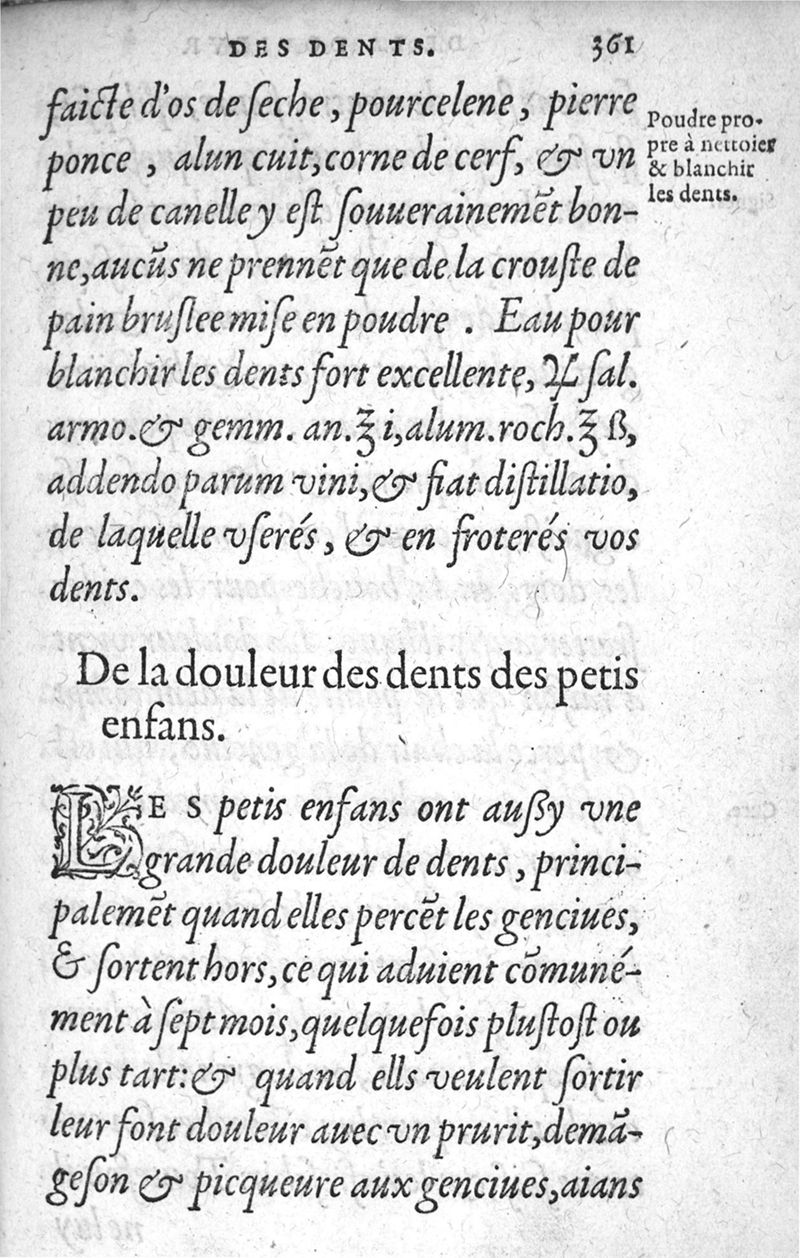 DES DENTS. 361
faicte d'os de ſeche, pourcelene, pierre
ponce, alun cuit, corne de cerf, & vn
peu de canelle y eſt ſouuerainemēt bon-
ne, aucūs ne prennēt que de la crouſte de
pain bruſlee miſe en poudre. Eau pour
blanchir les dents fort excellente, ℞ ſal.
armo. & gemm. an. ℥ i, alum. roch. ℥ ß,
addendo parum vini, & fiat diſtillatio,
de laquelle vſerés, & en froterés vos
dents.
Poudre pro-
pre à nettoier
& blanchir
les dents.
De la douleur des dents des petis
enfans.
LES petis enfans ont außy vne
grande douleur de dents, princi-
palemēt quand elles percēt les genciues,
& ſortent hors, ce qui aduient cōmuné-
ment à ſept mois, quelquefois pluſtoſt ou
plus tart: & quand ells veulent ſortir
leur font douleur auec vn prurit, demā-
geſon & picqueure aux genciues, aians